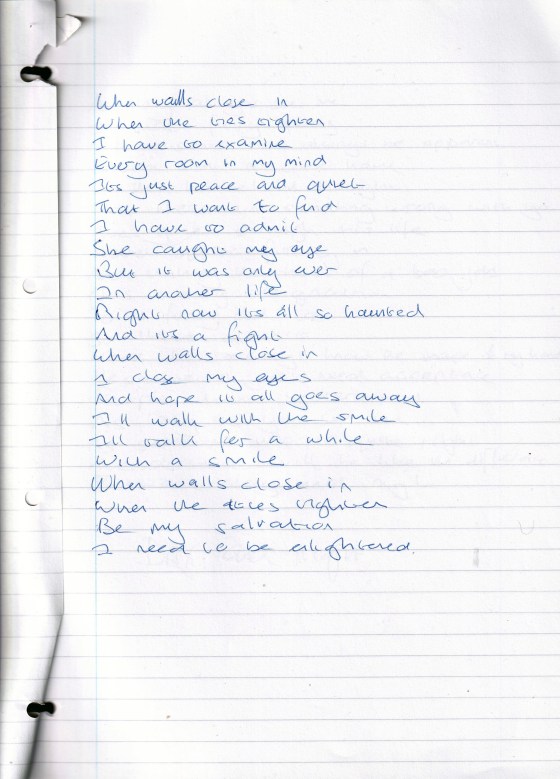 When walls close in
When the ties tighten
I have to examine
Every room in my mind
Its just peace and quiet
That I want to find
I have to admit
She caught my eye
But it was only ever
In another life
Right now its all so haunted
And its a fight
When walls close in
I close my eyes
And hope it all goes away
I'll walk with the smile
I'll talk for a while
With a smile
When walls close in
When the ties tighten
Be my salvation
I need to be enlightened.